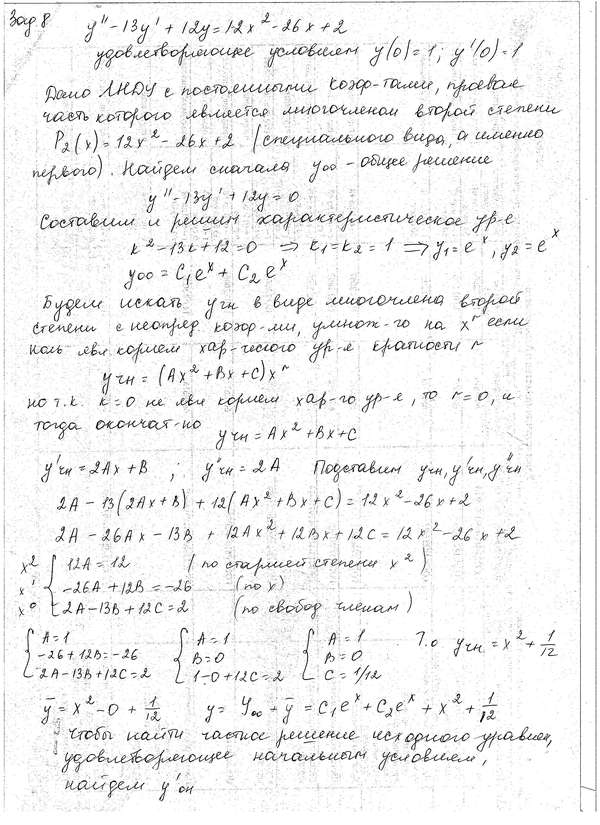 Зад 8
y'' - 13y' + 12y = 12x² - 26x + 2
удовлетворяющее условиям y(0) = 1; y'(0) = 1
Дано ЛНДУ с постоянными коэф-тами, правая
часть которого является многочленом второй степени
P₂(x) = 12x² - 26x + 2 (специального вида, а именно
первого). Найдем сначала yоо - общее решение
y'' - 13y' + 12y = 0
Составим и решим характеристическое ур-е
k² - 13k + 12 = 0 ⇒ k₁ = k₂ = 1 ⇒ y₁ = eˣ, y₂ = eˣ
yоо = C₁eˣ + C₂eˣ
Будем искать yчн в виде многочлена второй
степени с неопред коэф-ми, умнож-го на xʳ если
ноль явл. корнем хар-ческого ур-я кратности r
yчн = (Ax² + Bx + C)xʳ
но т.к. k = 0 не явл корнем хар-го ур-я, то r = 0, и
тогда окончат-но yчн = Ax² + Bx + C
y'чн = 2Ax + B ; y''чн = 2A Подставим yчн, y'чн, y''чн
2A - 13(2Ax + B) + 12(Ax² + Bx + C) = 12x² - 26x + 2
2A - 26Ax - 13B + 12Ax² + 12Bx + 12C = 12x² - 26x + 2
x² { 12A = 12 (по старшей степени x²)
x¹ { -26A + 12B = -26 (по x)
x⁰ { 2A - 13B + 12C = 2 (по свобод членам)
{ A = 1 { A = 1 { A = 1 Т.о yчн = x² + 1/12
{ -26 + 12B = -26 { B = 0 { B = 0
{ 2A - 13B + 12C = 2 { 1 - 0 + 12C = 2 { C = 1/12
ȳ = x² - 0 + 1/12 y = Yоо + ȳ = C₁eˣ + C₂eˣ + x² + 1/12
чтобы найти частное решение исходного уравнен,
удовлетворяющее начальным условиям,
найдем y'он